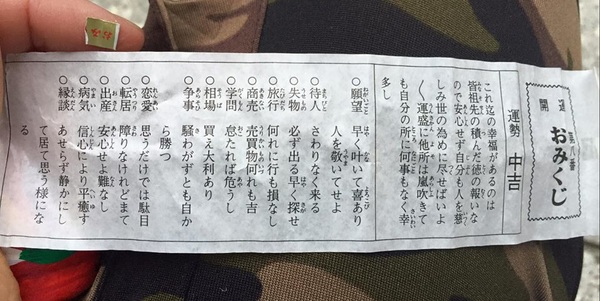 第八番
開運
おみくじ
運勢 中吉
これ迄の幸福があるのは
皆祖先の積んだ徳の報いな
ので安心せず自分も人を慈
しみ世の為めに尽せばいよ
く運盛に他所は嵐吹きて
も自分の所に何事もなく幸
多し
○願望 早く叶いて喜あり
人を敬いてせよ
○待人 さわりなく来る
○失物 必ず出る早く探せ
○旅行 何れに行も損なし
○商売 売買物何れも吉
○学問 怠たれば危うし
○相場 買え大利あり
○争事 騒わがずとも自か
ら勝つ
○恋愛 思うだけでは駄目
○転居 障りなけれどまて
○出産 安心せよ難なし
○病気 信心により平癒す
○縁談 あせらず静かにし
て居て思う様にな
る